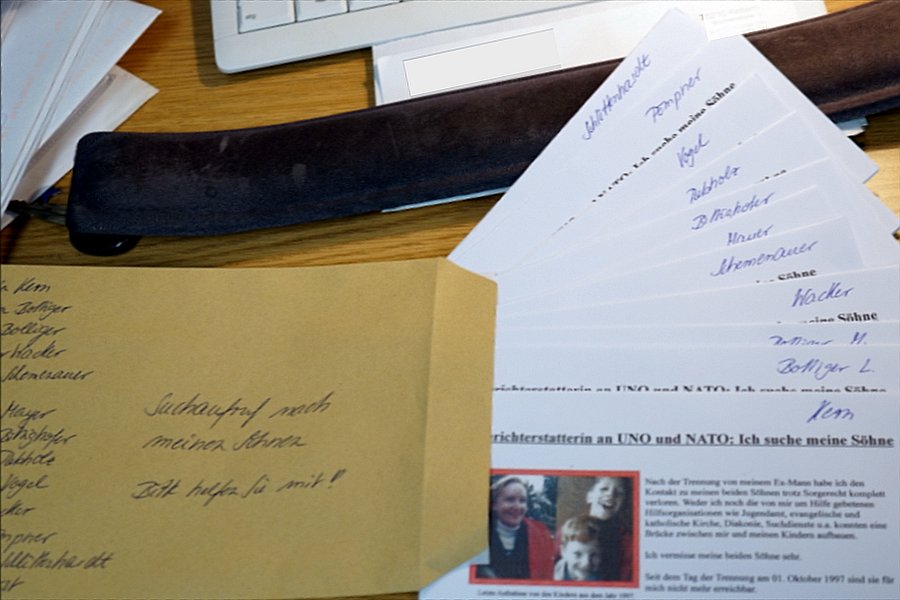 Kern
Bolliger
Bolliger
Wacker
Schemenauer
Mayer
Bitzighofer
Vogel
Schlüttenhardt
Suchaufruf nach
meinen Söhnen
Bitte helfen Sie mit!!
Schlüttenhardt
Pempner
Ich suche meine Söhne
Vogel
Bitzighofer
Mauer
Schemenauer
Söhne
Wacker
meine Söhne
Bolliger L.
richterstatterin an UNO und NATO: Ich suche meine Söhne
Kern
richterstatterin an UNO und NATO: Ich suche meine Söhne
Nach der Trennung von meinem Ex-Mann habe ich den
Kontakt zu meinen beiden Söhnen trotz Sorgerecht komplett
verloren. Weder ich noch die von mir um Hilfe gebetenen
Hilfsorganisationen wie Jugendamt, evangelische und
katholische Kirche, Diakonie, Suchdienste u.a. konnten eine
Brücke zwischen mir und meinen Kindern aufbauen.
Ich vermisse meine beiden Söhne sehr.
Seit dem Tag der Trennung am 01. Oktober 1997 sind sie für
mich nicht mehr erreichbar.
Letzte Aufnahme von den Kindern aus dem Jahr 1997